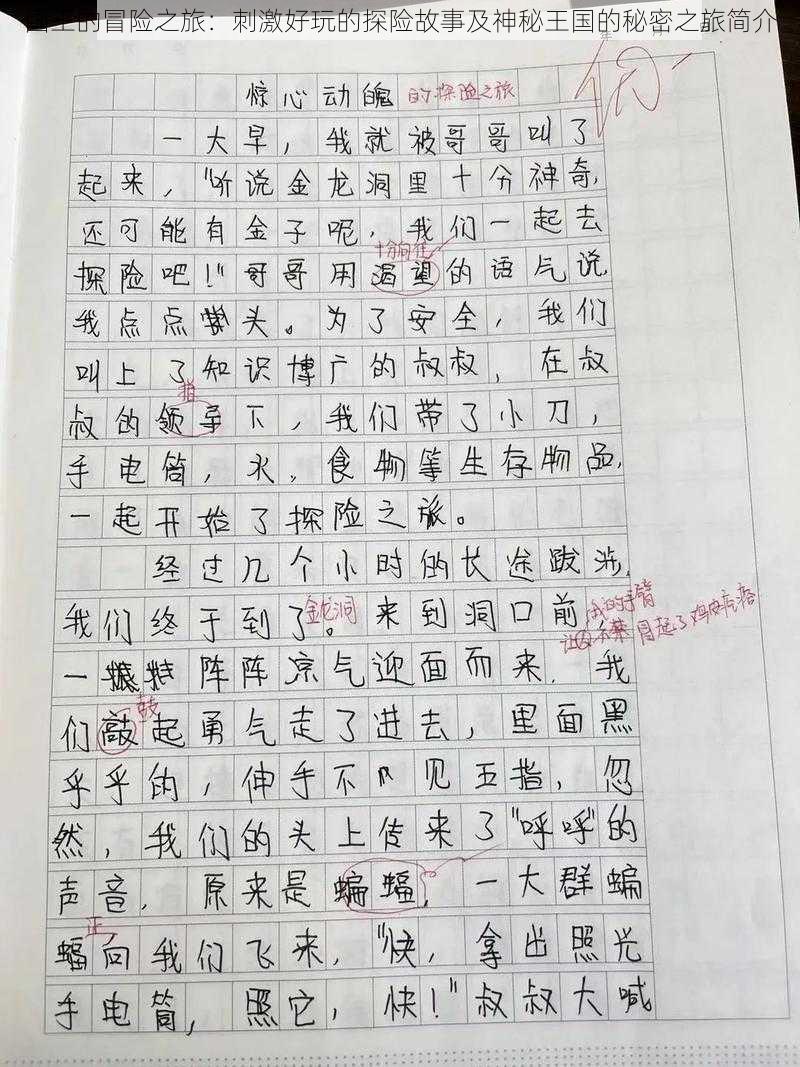 国王的冒险之旅：刺激好玩的探险故事及神秘王国的秘密之旅简介
惊心动魄的探险之旅
一大早，我就被哥哥叫了
起来，“听说金龙洞里十分神奇，
还可能有金子呢，我们一起去
十分向往
探险吧！”哥哥用渴望的语气说
我点点头。为了安全，我们
叫上了知识博广的叔叔，在叔
指
叔的领导下，我们带了小刀，
手电筒，水，食物等生存物品，
一起开始了探险之旅。
经过几个小时的长途跋涉，
我们终于到了金龙洞。来到洞口前
让我不禁冒起了鸡皮疙瘩
一阵阵凉气迎面而来，我
鼓
们敲起勇气走了进去，里面黑
乎乎的，伸手不见五指，忽
然，我们的头上传来了“呼呼”的
声音，原来是蝙蝠，一大群蝙
正
蝠向我们飞来，“快，拿出照光
手电筒，照它，快！”叔叔大喊